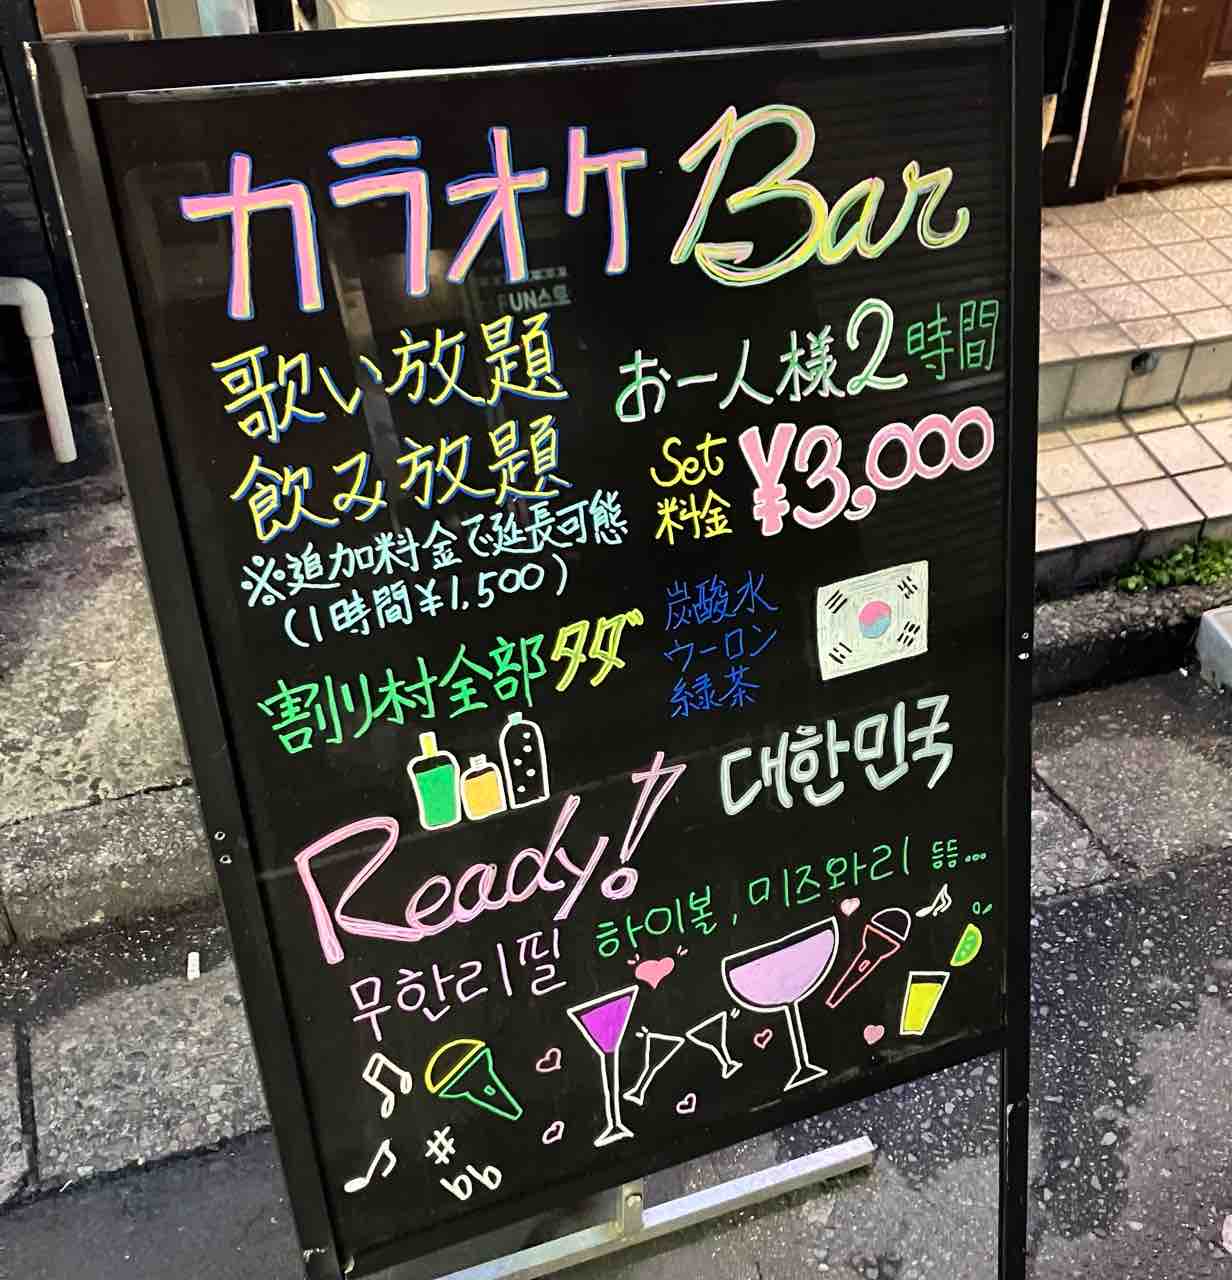 カラオケ Bar
歌い放題
飲み放題
※追加料金で延長可態
(1時間¥1,500)
お一人様2時間
Set
料金 ¥3,000
割り村全部タダ
炭酸水
ウーロン
緑茶
대한민국
Ready!
무한리필
하이볼, 미즈와리 뜽...
FUN스토